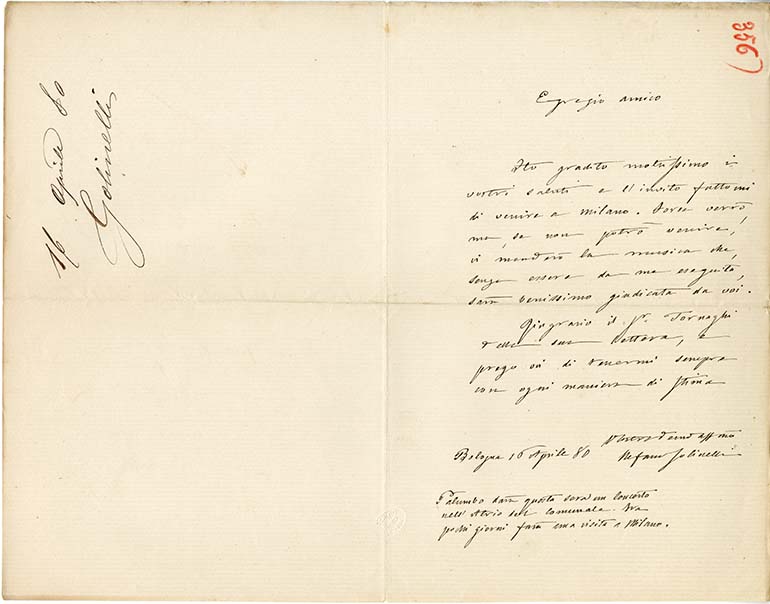 16 Aprile 80
Golinelli
356)
Egregio amico
Ho gradito moltissimo i
vostri saluti e l'invito fattomi
di venire a Milano. Forse verrò
ma, se non potrò venire,
vi manderò la musica che,
senza essere da me eseguita,
sarà benissimo giudicata da voi.
Ringrazio il Sr. Tornaghi
della sua lettera, e
prego voi di tenermi sempre
con ogni maniera di stima
Vostro affmo
Bologna 16 Aprile 80 Stefano Golinelli
Palumbo darà questa sera un concerto
nell'Atrio del Comunale. Fra
pochi giorni farà una visita a Milano.